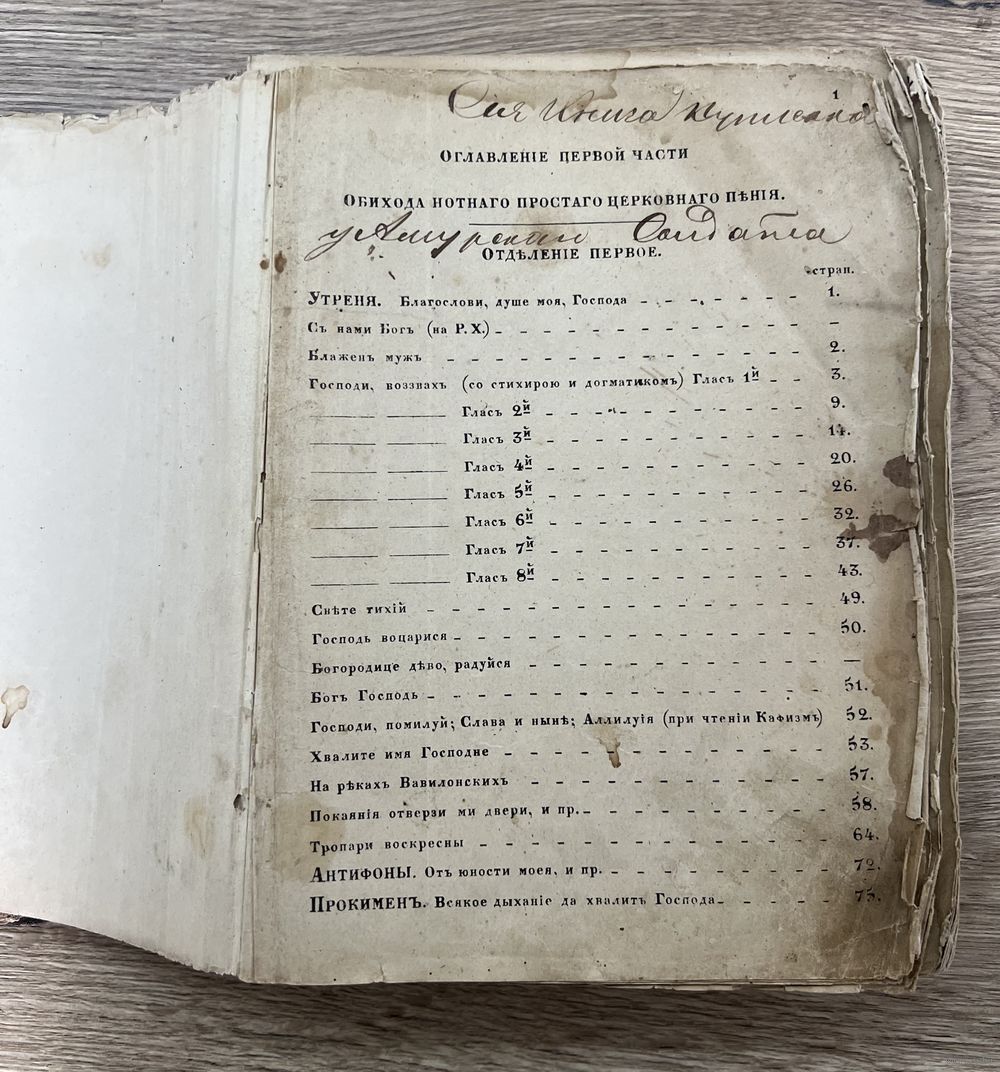 1
Сія Книга куплена
Оглавленіе первой части
Обихода нотнаго простаго церковнаго пѣнія.
у Амурскаи Солдата
Отдѣленіе первое.
стран.
Утреня. Благослови, душе моя, Господа - - - - - - - 1.
Съ нами Богъ (на Р. Х.) - - - - - - - - - - - —
Блаженъ мужъ - - - - - - - - - - - - - - 2.
Господи, воззвахъ (со стихирою и догматикомъ) Гласъ 1й - - 3.
——— ——— Гласъ 2й - - - - - - - - - - 9.
——— ——— Гласъ 3й - - - - - - - - - - 14.
——— ——— Гласъ 4й - - - - - - - - - - 20.
——— ——— Гласъ 5й - - - - - - - - - - 26.
——— ——— Гласъ 6й - - - - - - - - - - 32.
——— ——— Гласъ 7й - - - - - - - - - - 37.
——— ——— Гласъ 8й - - - - - - - - - - 43.
Свѣте тихій - - - - - - - - - - - - - - - 49.
Господь воцарися - - - - - - - - - - - - - - 50.
Богородице дѣво, радуйся - - - - - - - - - - - —
Богъ Господь - - - - - - - - - - - - - - - 51.
Господи, помилуй; Слава и нынѣ; Аллилуія (при чтеніи Кафизмъ) 52.
Хвалите имя Господне - - - - - - - - - - - - 53.
На рѣкахъ Вавилонскихъ - - - - - - - - - - - 57.
Покаянія отверзи ми двери, и пр. - - - - - - - - - 58.
Тропари воскресны - - - - - - - - - - - - - 64.
Антифоны. Отъ юности моея, и пр. - - - - - - - - 72.
Прокименъ. Всякое дыханіе да хвалитъ Господа - - - - 75.